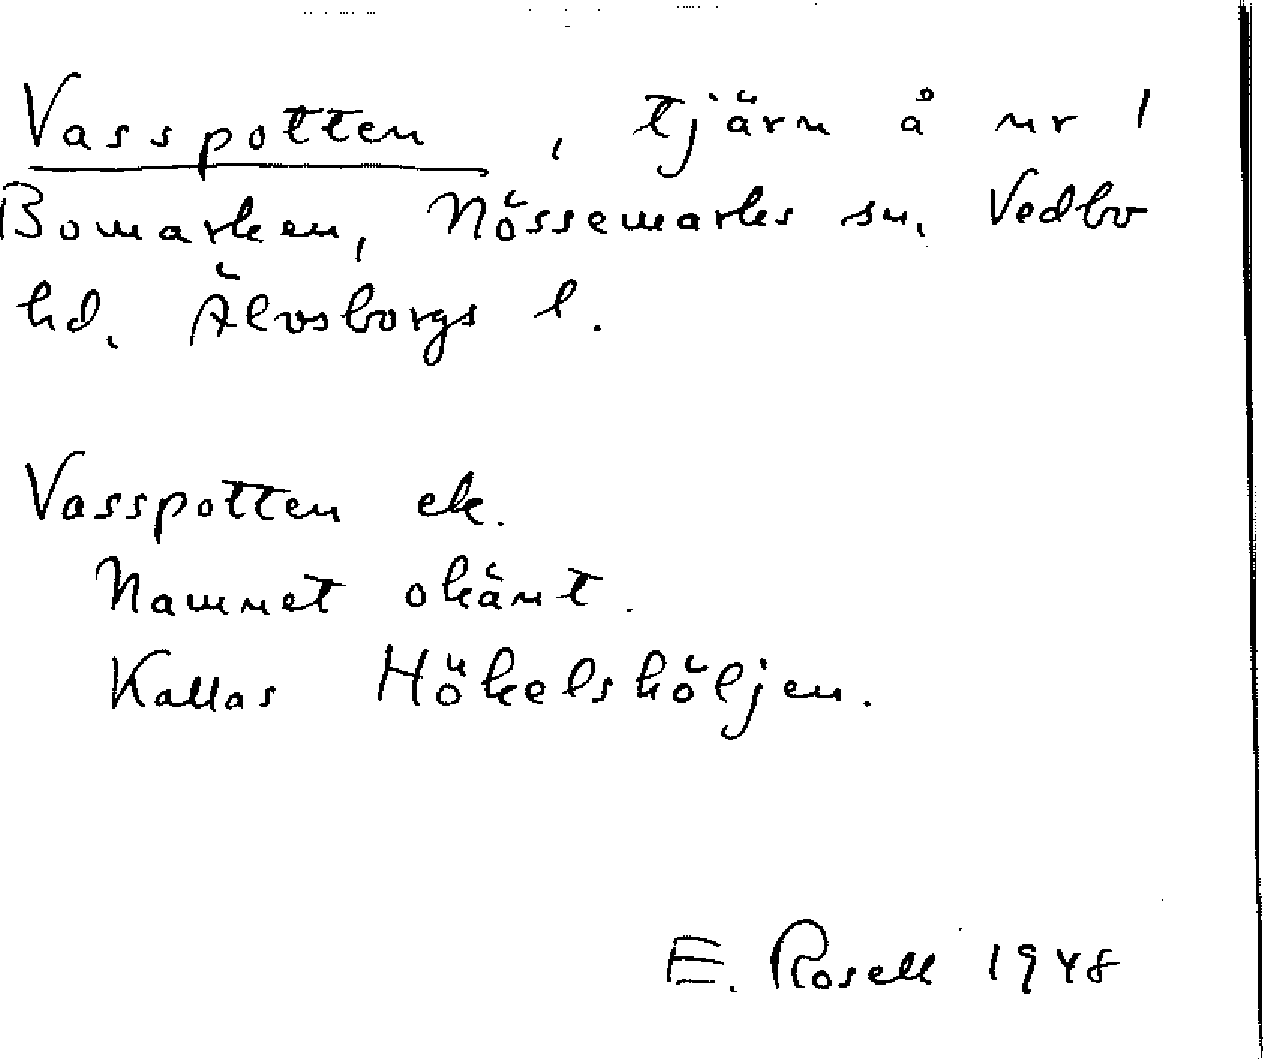 Vasspotten, tjärn å nr 1
Bomarken, Nössemarks sn, Vedbo
hd. Älvsborgs l.
Vasspotten ek.
Namnet okänt.
Kallas Hökelshöljen.
E. Rosell 1948